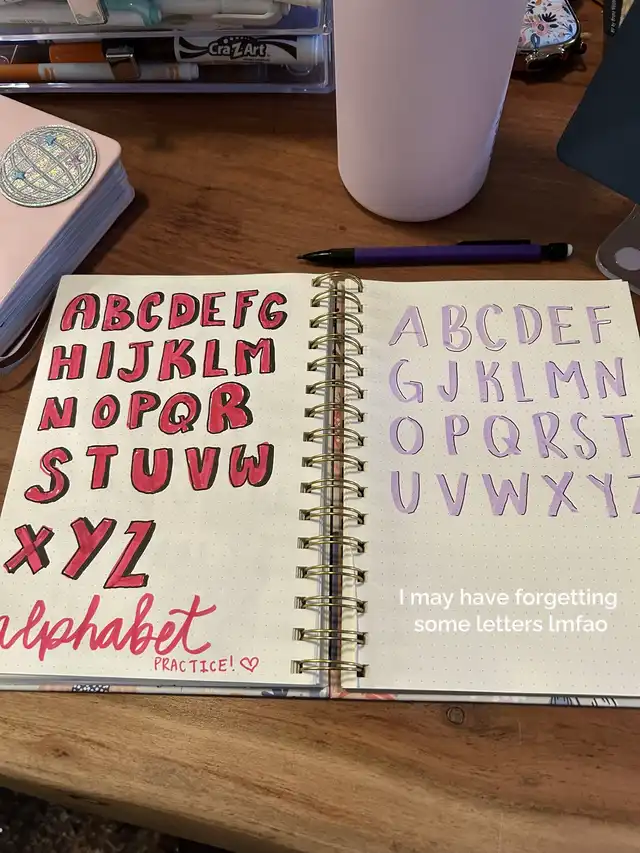 CRAZART
ABCDEFG
HIJKLM
NOPQR
STUVW
XYZ
alphabet
PRACTICE! ♡
ABCDEF
GJKLMN
OPQRST
UVWXYZ
I may have forgetting
some letters lmfao